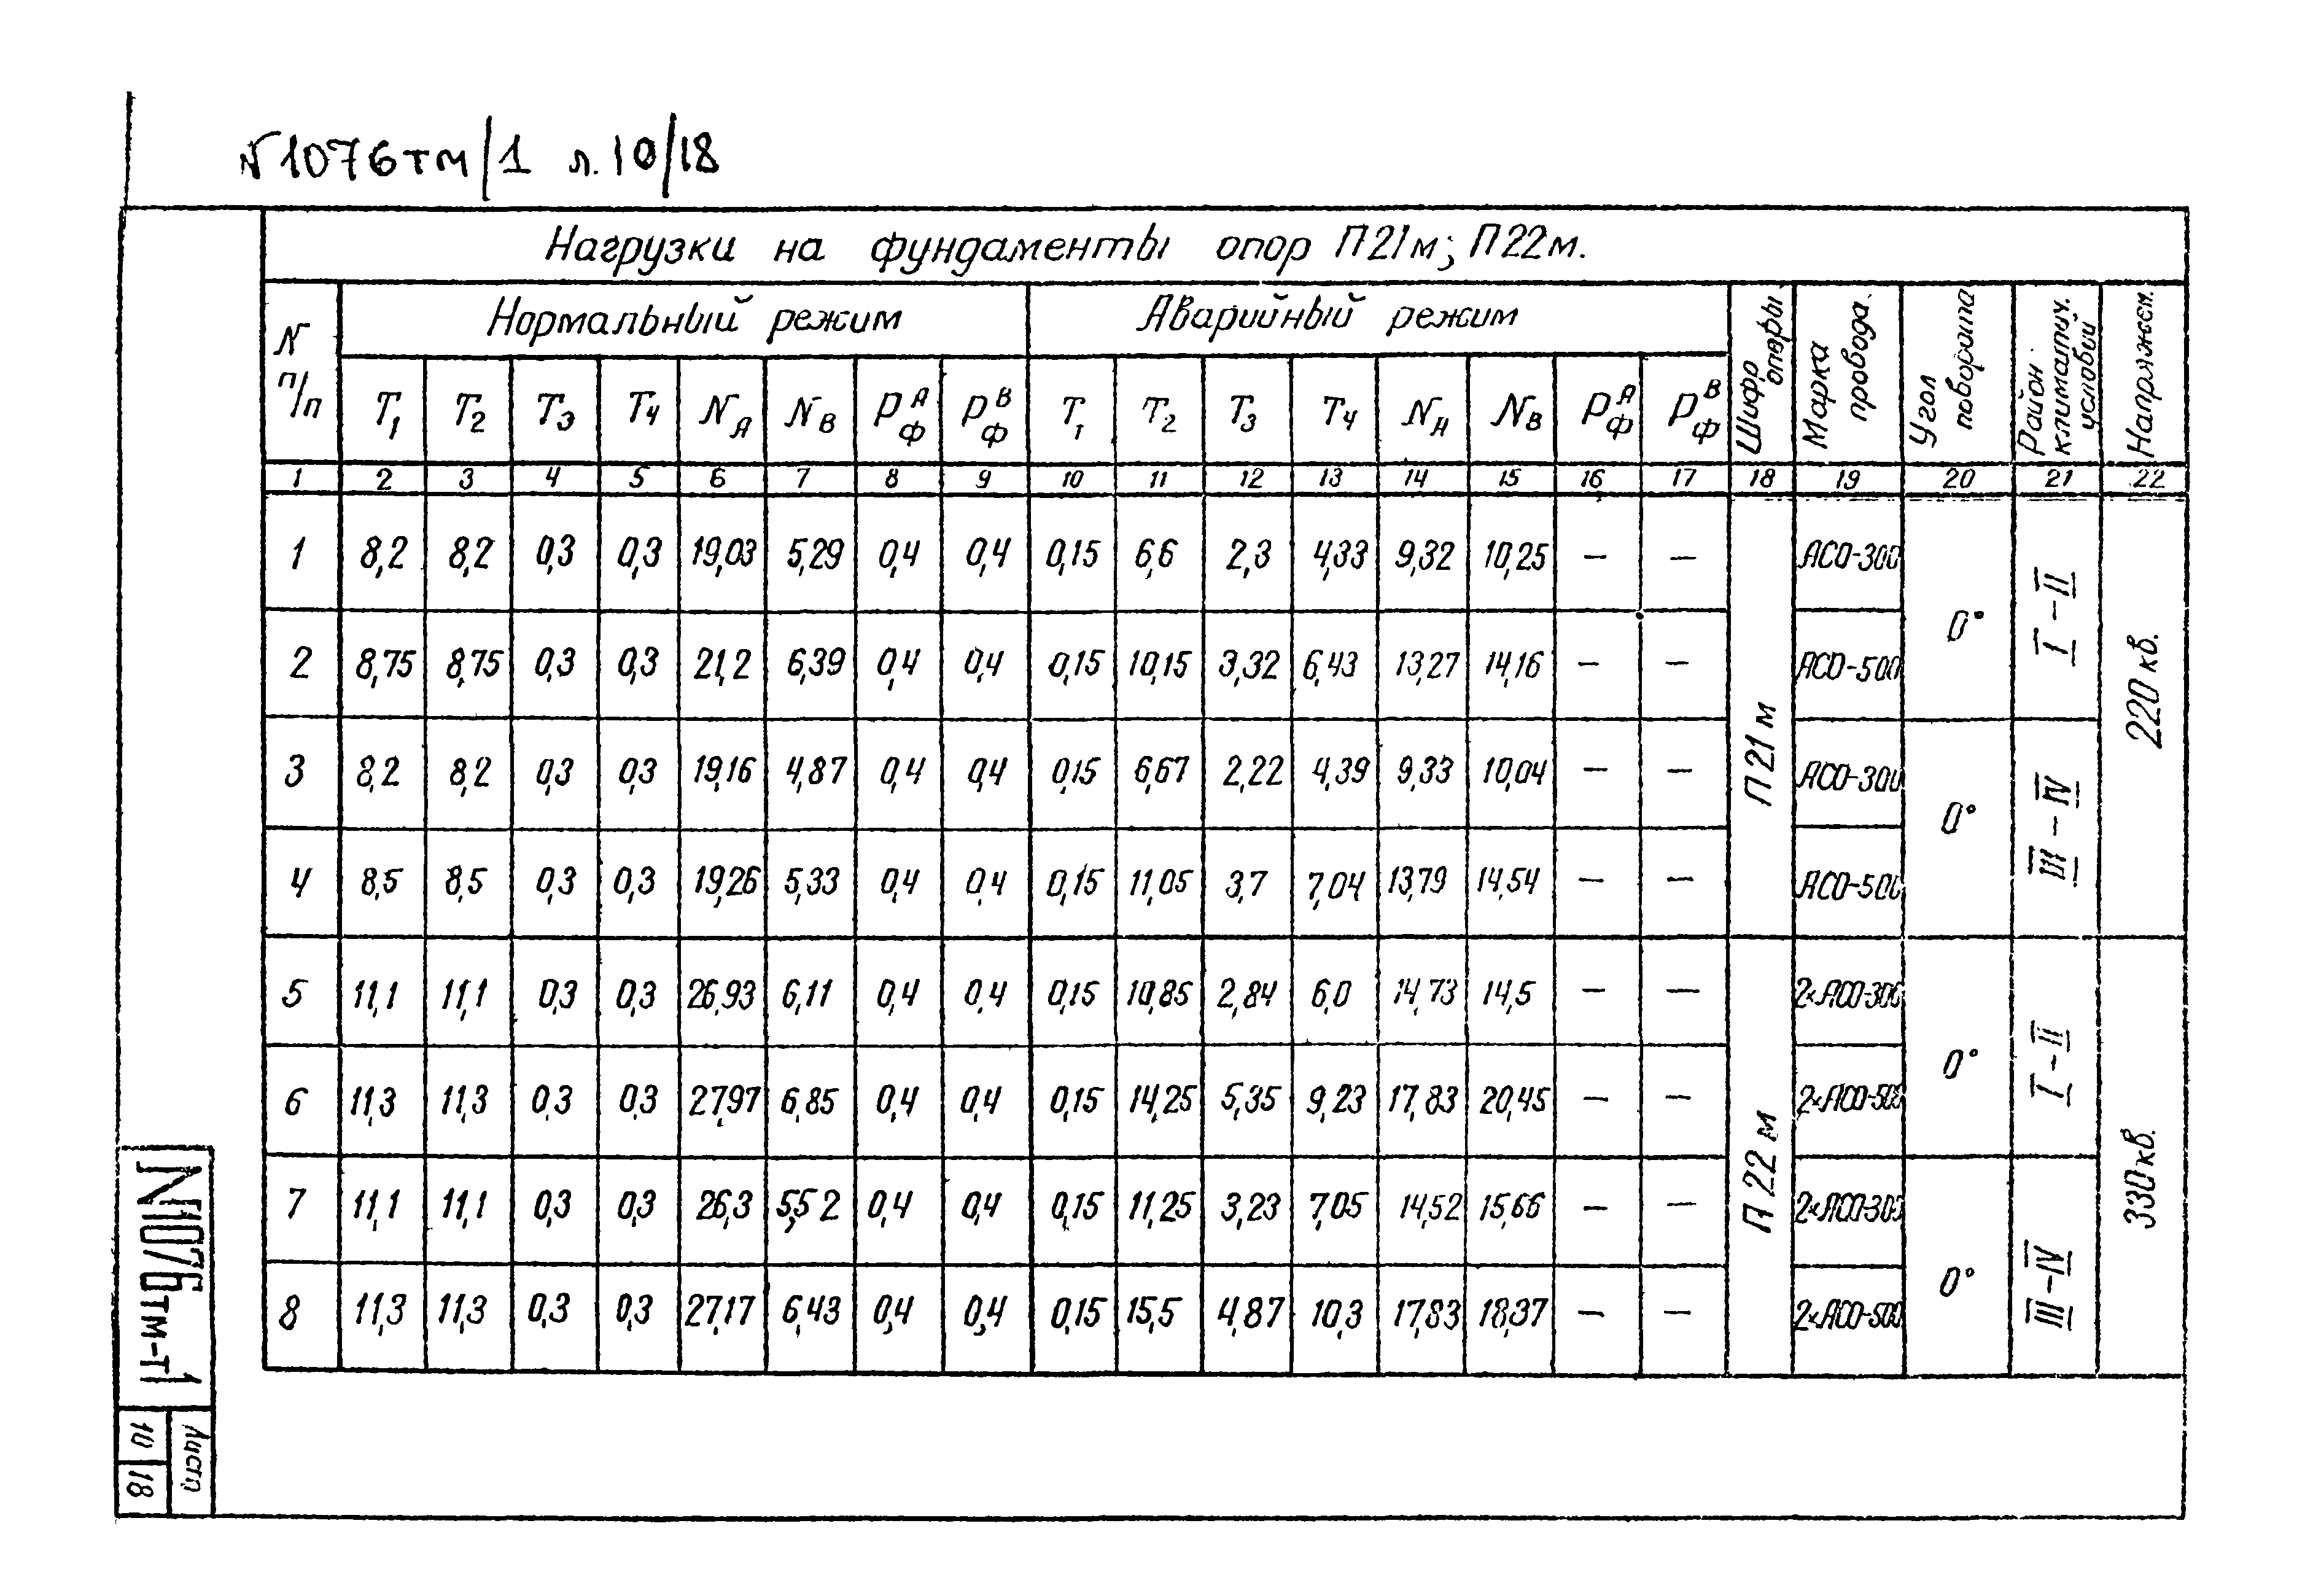 N1076тм/1 л.10/18
Нагрузки на фундаменты опор П21м; П22м.
N п/п Нормальный режим Аварийный режим Шифр опоры Марка провода. Угол поворота Район климатич. условий Напряжен.
T1 T2 T3 T4 NA NB PфA PфB T1 T2 T3 T4 NA NB PфA PфB
1 2 3 4 5 6 7 8 9 10 11 12 13 14 15 16 17 18 19 20 21 22
1 8,2 8,2 0,3 0,3 19,03 5,29 0,4 0,4 0,15 6,6 2,3 4,33 9,32 10,25 – – П21м АСО-300 0° I-II 220 кв.
2 8,75 8,75 0,3 0,3 21,2 6,39 0,4 0,4 0,15 10,15 3,32 6,43 13,27 14,16 – – АСО-500
3 8,2 8,2 0,3 0,3 19,16 4,87 0,4 0,4 0,15 6,67 2,22 4,39 9,33 10,04 – – АСО-300 0° III-IV
4 8,5 8,5 0,3 0,3 19,26 5,33 0,4 0,4 0,15 11,05 3,7 7,04 13,79 14,54 – – АСО-500
5 11,1 11,1 0,3 0,3 26,93 6,11 0,4 0,4 0,15 10,85 2,84 6,0 14,73 14,5 – – П22м 2×АСО-300 0° I-II 330кв.
6 11,3 11,3 0,3 0,3 27,97 6,85 0,4 0,4 0,15 14,25 5,35 9,23 17,83 20,45 – – 2×АСО-500
7 11,1 11,1 0,3 0,3 26,3 5,52 0,4 0,4 0,15 11,25 3,23 7,05 14,52 15,66 – – 2×АСО-300 0° III-IV
8 11,3 11,3 0,3 0,3 27,17 6,43 0,4 0,4 0,15 15,5 4,87 10,3 17,83 18,37 – – 2×АСО-500
N1076тм-т1
Лист
10 18